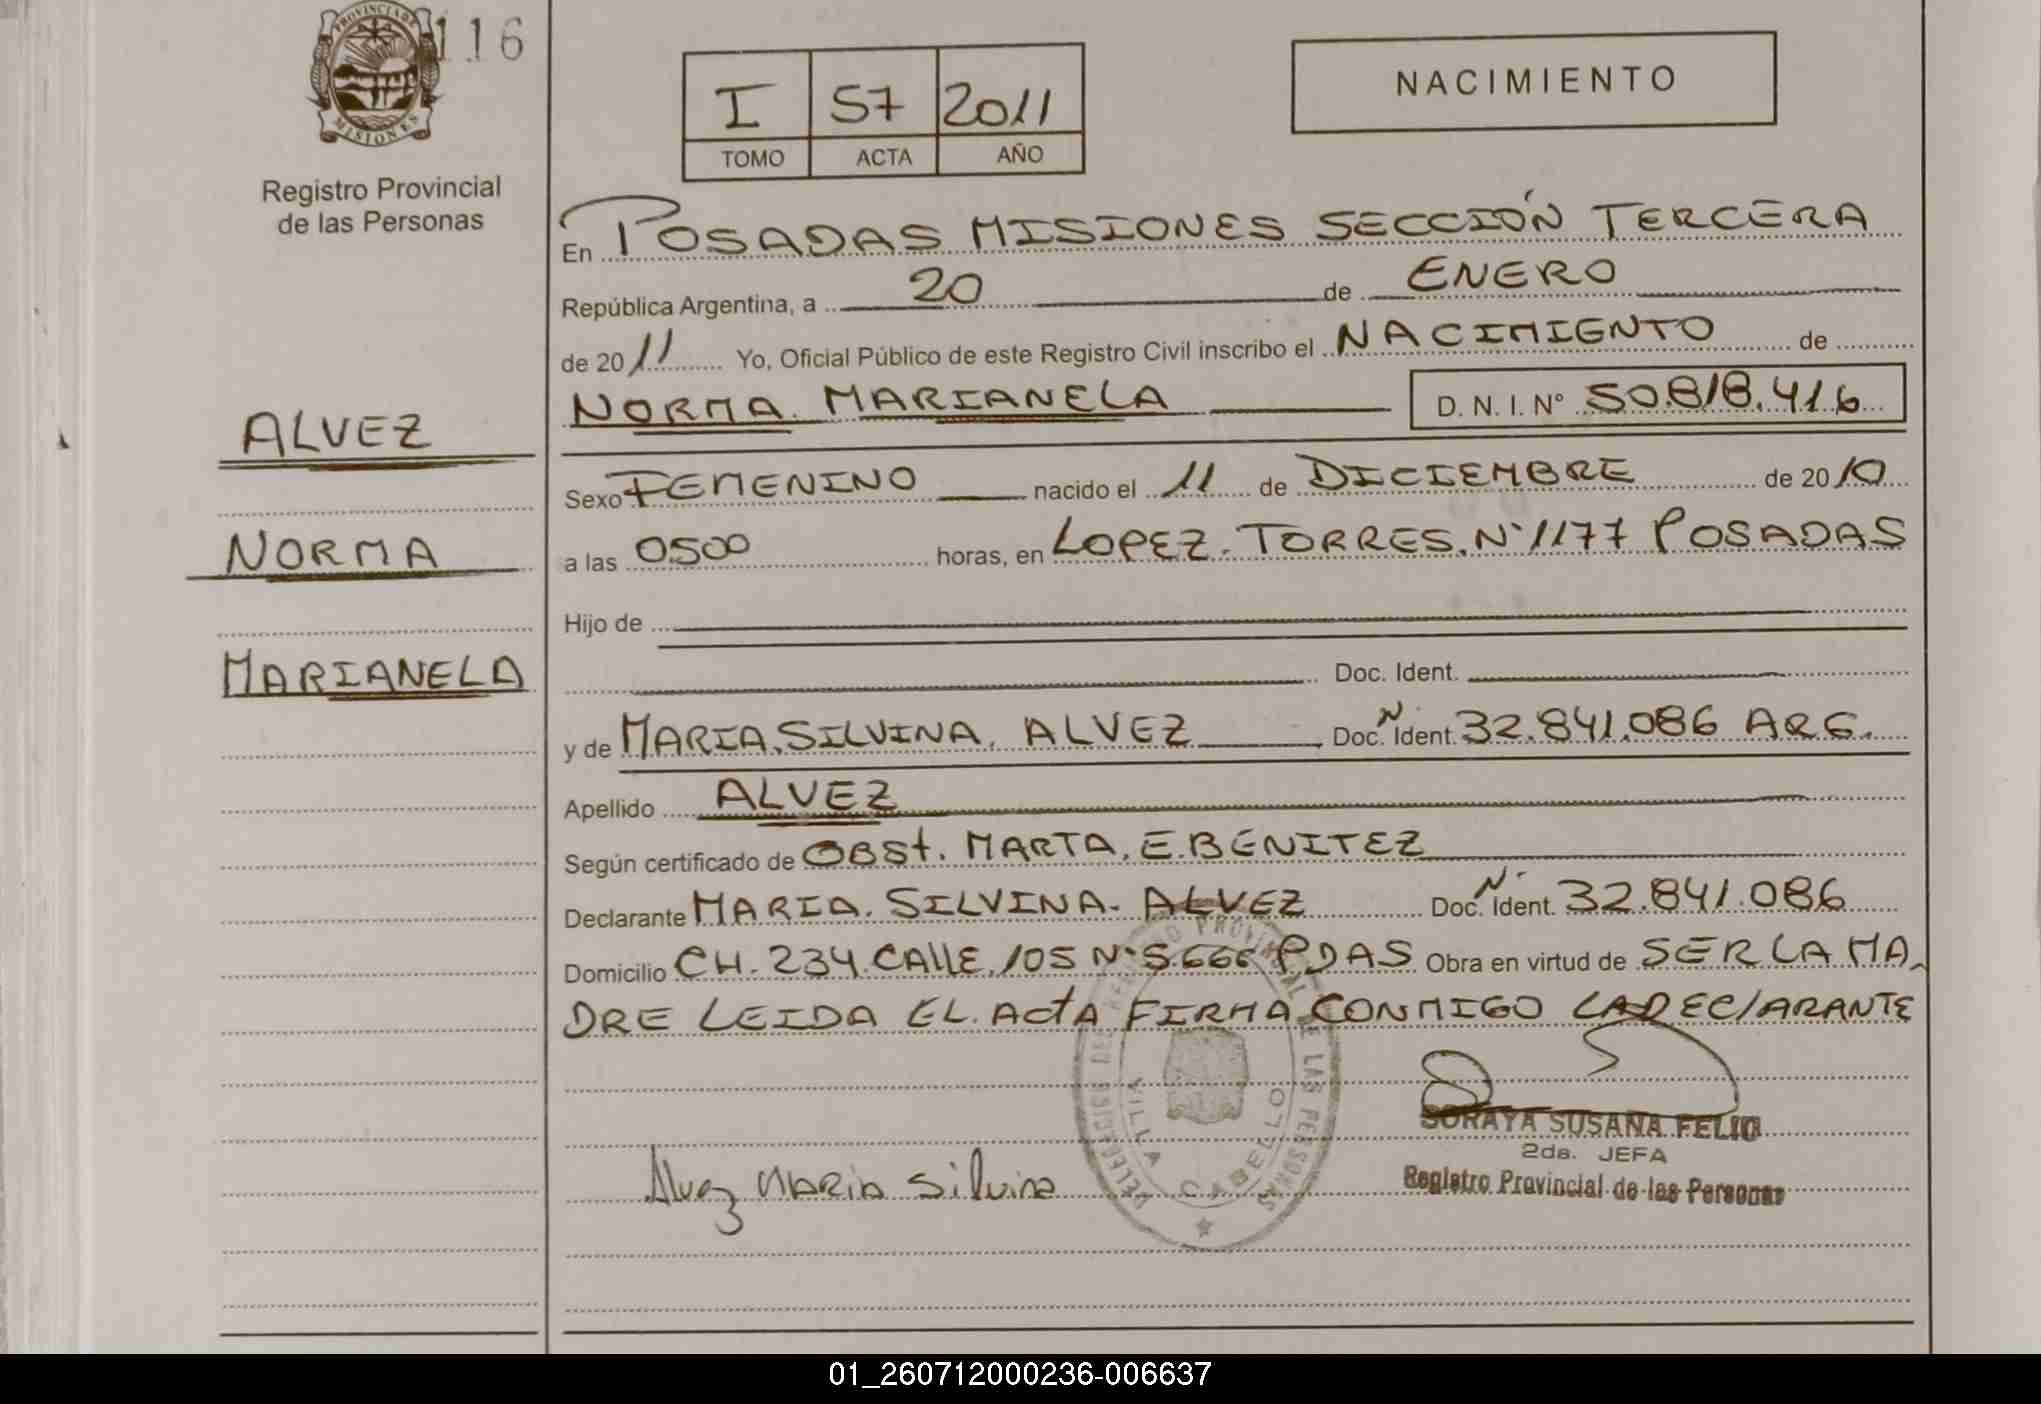 PROVINCIA DE
MISIONES
116
Registro Provincial
de las Personas
I 57 2011
TOMO ACTA AÑO
NACIMIENTO
En POSADAS MISIONES SECCIÓN TERCERA
República Argentina, a 20 de ENERO
de 2011 Yo, Oficial Público de este Registro Civil inscribo el NACIMIENTO de
NORMA MARIANELA D. N. I. N° 50.818.416
ALVEZ
Sexo FEMENINO nacido el 11 de DICIEMBRE de 2010
NORMA
a las 0500 horas, en LOPEZ TORRES N° 1177 POSADAS
Hijo de
MARIANELA
Doc. Ident.
y de MARIA SILVINA ALVEZ Doc. N° Ident. 32.841.086 ARG.
Apellido ALVEZ
Según certificado de OBSt. MARTA E. BENITEZ
Declarante MARIA SILVINA ALVEZ Doc. N° Ident. 32.841.086
Domicilio CH. 234 CALLE 105 N° 5.666 PDAS Obra en virtud de SER LA MA
DRE LEIDA EL ACtA FIRMA CONMIGO LA DEClARANTE
DELEGACIÓN DEL REGISTRO PROVINCIAL DE LAS PERSONAS
VILLA CABELLO
SORAYA SUSANA FELIU
2da. JEFA
Registro Provincial de las Personas
Alvez MARiA Silvina
01_260712000236-006637